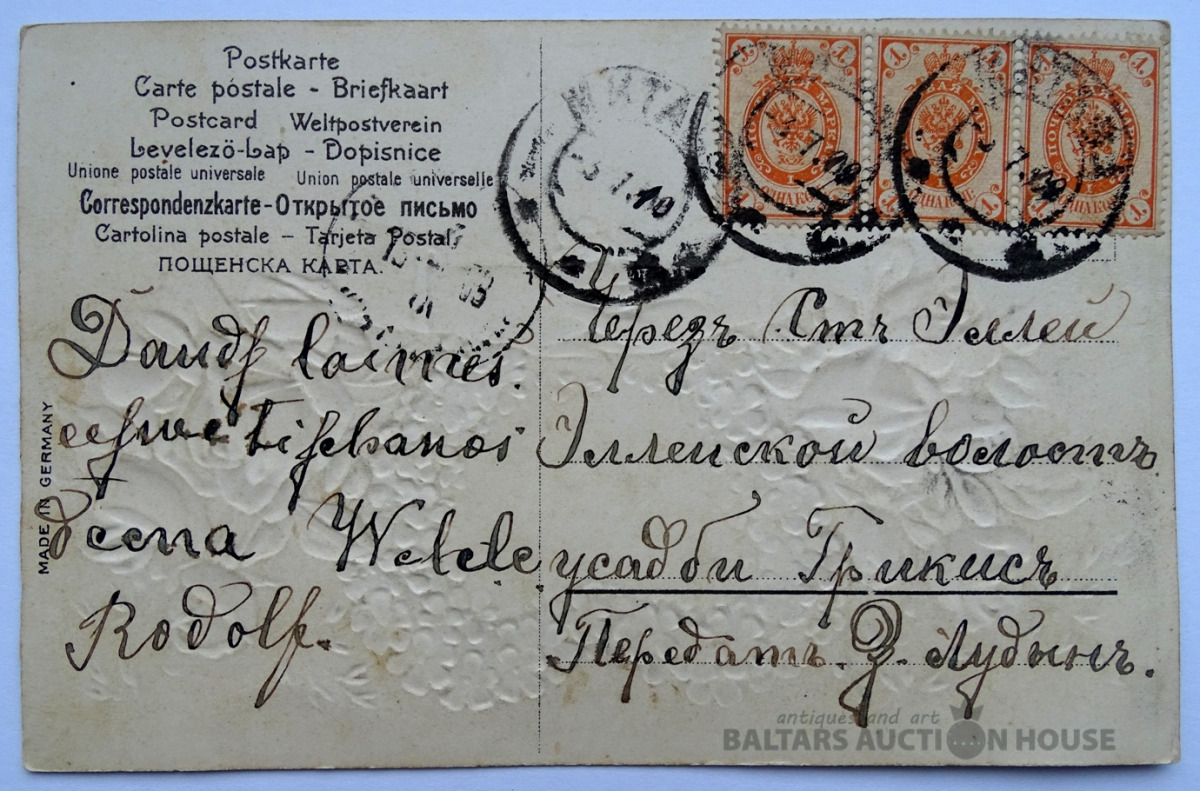 Postkarte
Carte póstale - Briefkaart
Postcard Weltpostverein
Levelezö-Lap - Dopisnice
Unione postale universale Union postale universelle
Correspondenzkarte-Открытое письмо
Cartolina postale – Tarjeta Postal
ПОЩЕНСКА КАРТА.
MADE IN GERMANY
Daudſ laimes.
Rodolf.
МИТАВА
Черезъ Стъ Эллей
Элленской волость
усадби Грикисъ
Передатъ. З. Лудынъ.
antiques and art
BALTARS AUCTION HOUSE